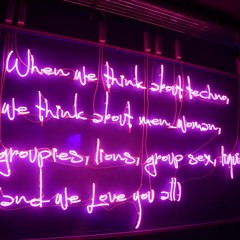 When we think about techno,
we think about men, woman,
groupies, lions, group sex,
and we love you all)